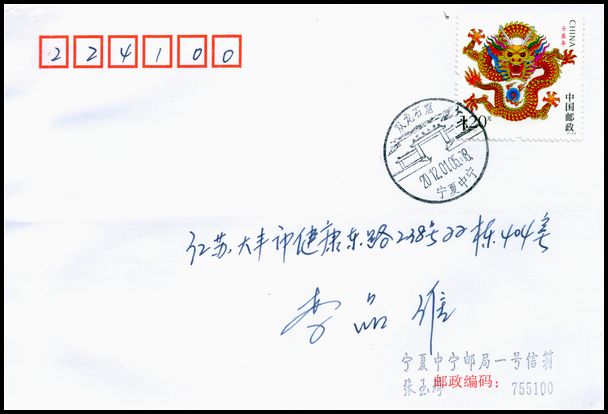 224100
CHINA
壬辰年
中国邮政
1.20元
双龙石窟
2012.01.05.18
宁夏中宁
江苏大丰市健康东路238号22栋404室
李品维
宁夏中宁邮局一号信箱
邮政编码:
755100